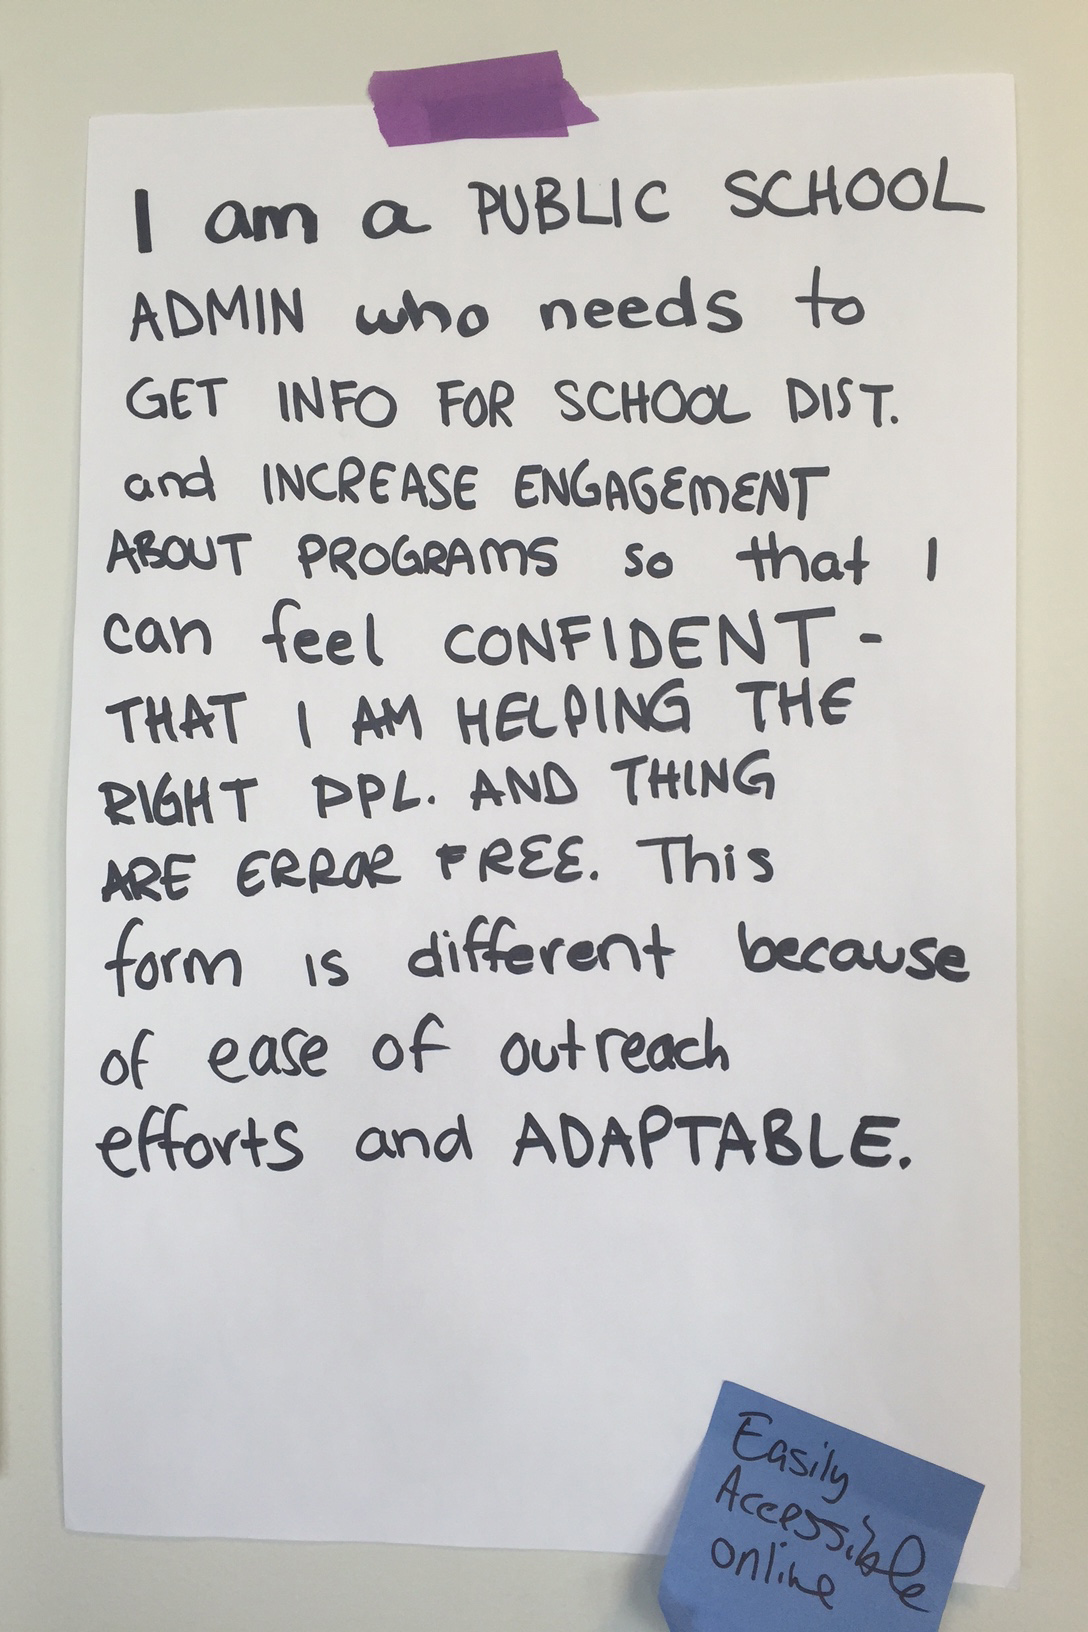 I am a PUBLIC SCHOOL
ADMIN who needs to
GET INFO FOR SCHOOL DIST.
and INCREASE ENGAGEMENT
ABOUT PROGRAMS so that I
can feel CONFIDENT -
THAT I AM HELPING THE
RIGHT PPL. AND THING
ARE ERROR FREE. This
form is different because
of ease of outreach
efforts and ADAPTABLE.
Easily
Accessible
online